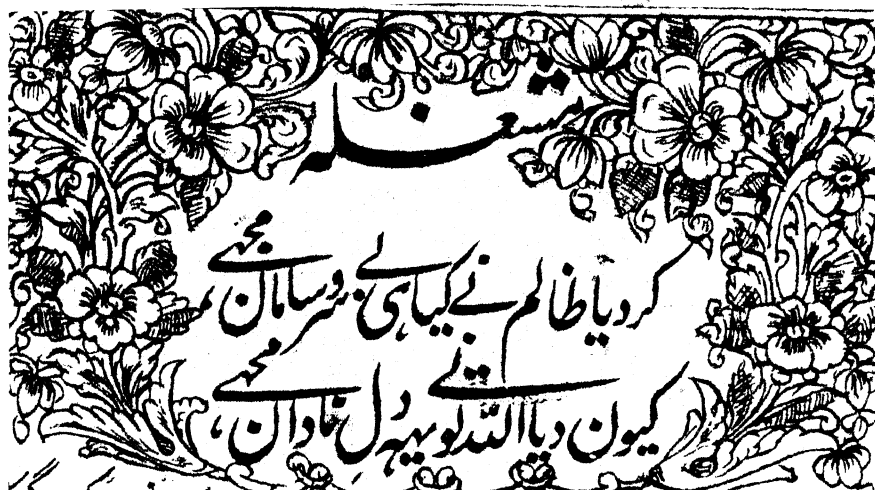 مشغلہ
کردیا ظالم نے کیا ہی بے سر و سامان مجہے
کیون دیا اللہ تو نے یہہ دل نادان مجہے